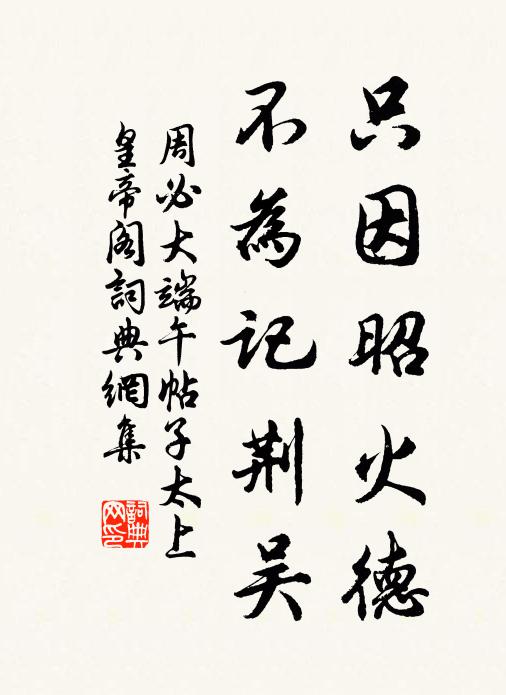 只因昭火德
不為記荆吴
周必大端午帖子太上
皇帝阁詞典網集
詞典
网印